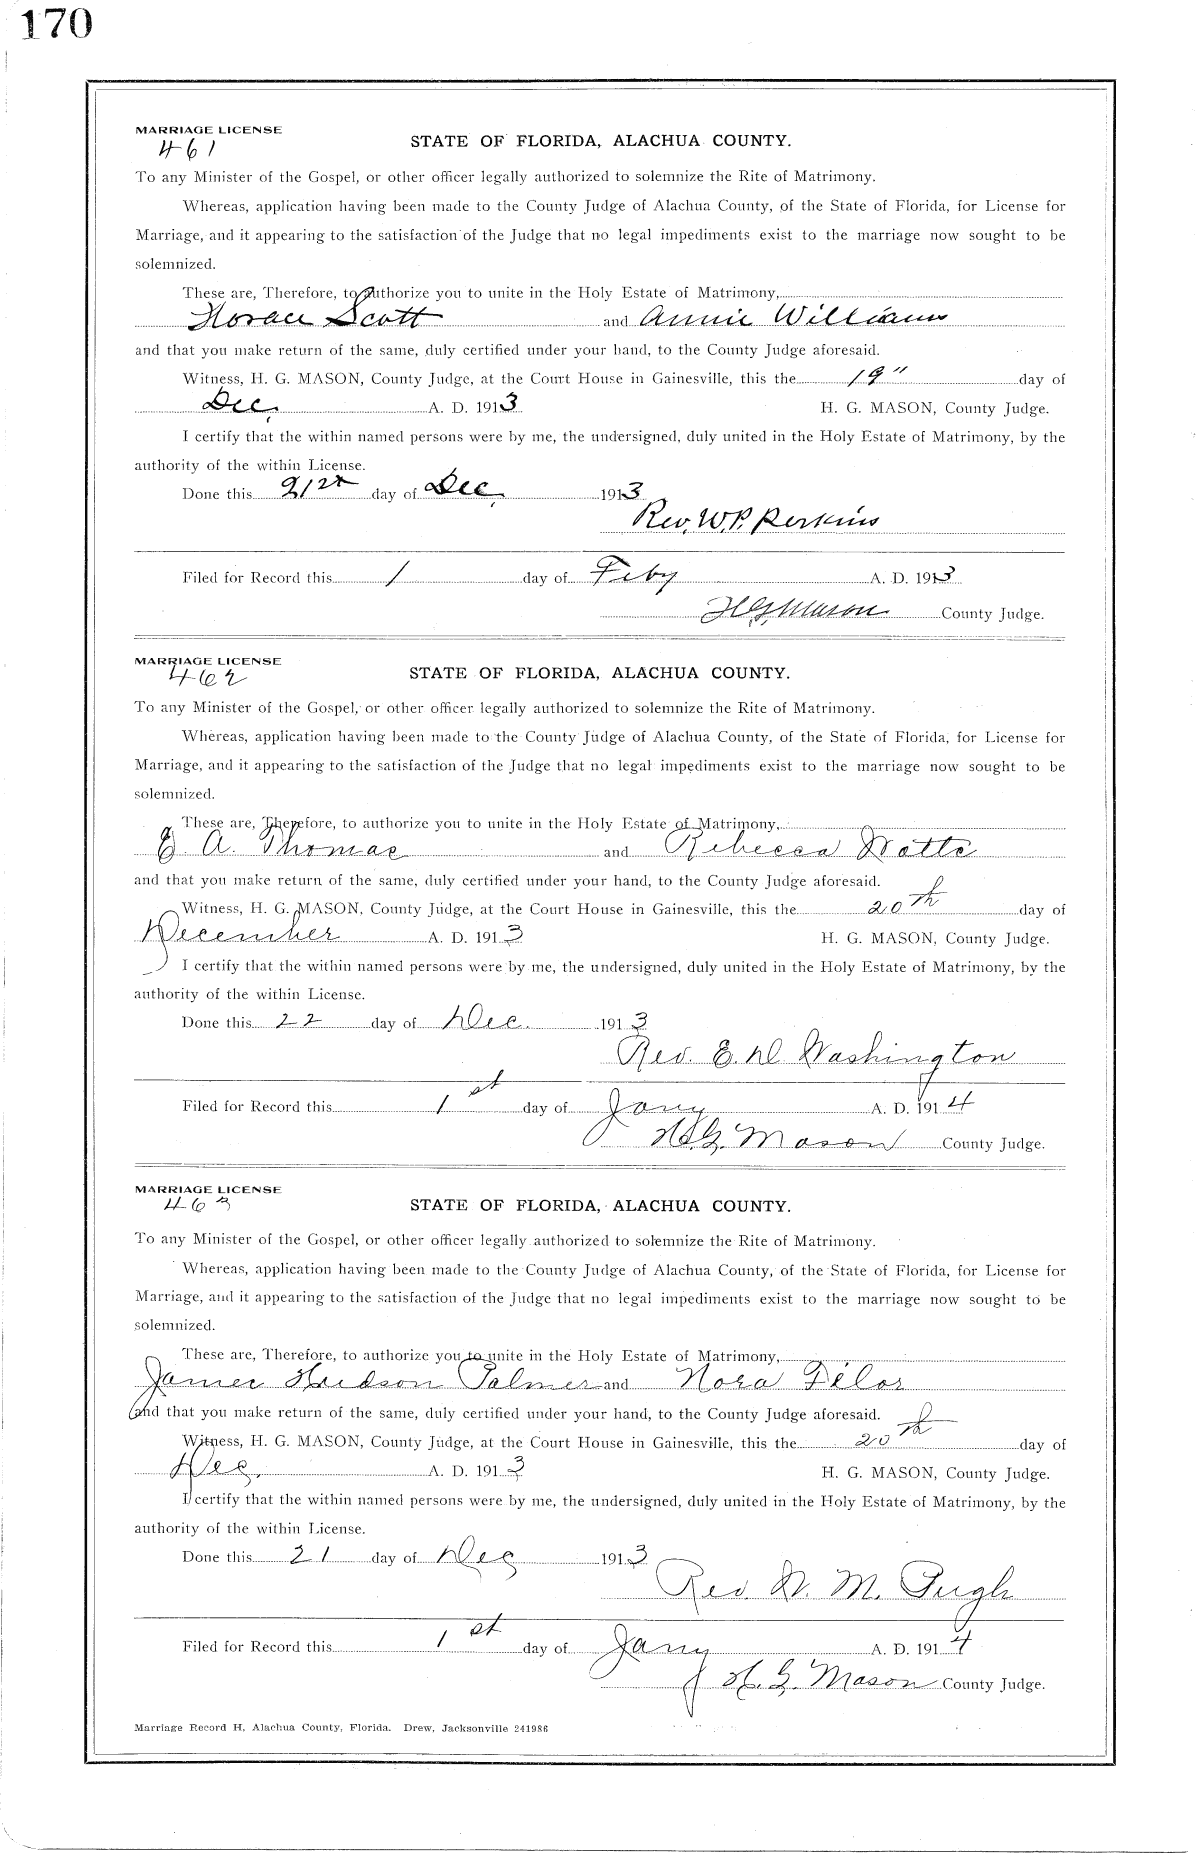 170
MARRIAGE LICENSE
461
STATE OF FLORIDA, ALACHUA COUNTY.
To any Minister of the Gospel, or other officer legally authorized to solemnize the Rite of Matrimony.
Whereas, application having been made to the County Judge of Alachua County, of the State of Florida, for License for
Marriage, and it appearing to the satisfaction of the Judge that no legal impediments exist to the marriage now sought to be
solemnized.
These are, Therefore, to authorize you to unite in the Holy Estate of Matrimony,
Horace Scott and Annie Williams
and that you make return of the same, duly certified under your hand, to the County Judge aforesaid.
Witness, H. G. MASON, County Judge, at the Court House in Gainesville, this the 19" day of
Dec, A. D. 1913 H. G. MASON, County Judge.
I certify that the within named persons were by me, the undersigned, duly united in the Holy Estate of Matrimony, by the
authority of the within License.
Done this 21st day of Dec, 1913
Rev. W. P. Perkins
Filed for Record this 1 day of Feby A. D. 1913
H. G. Mason County Judge.
MARRIAGE LICENSE
462
STATE OF FLORIDA, ALACHUA COUNTY.
To any Minister of the Gospel, or other officer legally authorized to solemnize the Rite of Matrimony.
Whereas, application having been made to the County Judge of Alachua County, of the State of Florida, for License for
Marriage, and it appearing to the satisfaction of the Judge that no legal impediments exist to the marriage now sought to be
solemnized.
These are, Therefore, to authorize you to unite in the Holy Estate of Matrimony,
E. A. Thomas and Rebecca Watts
and that you make return of the same, duly certified under your hand, to the County Judge aforesaid.
Witness, H. G. MASON, County Judge, at the Court House in Gainesville, this the 20th day of
December A. D. 1913 H. G. MASON, County Judge.
I certify that the within named persons were by me, the undersigned, duly united in the Holy Estate of Matrimony, by the
authority of the within License.
Done this 22 day of Dec. 1913
Rev. E. D. Washington
Filed for Record this 1st day of Jany A. D. 1914
H. G. Mason County Judge.
MARRIAGE LICENSE
463
STATE OF FLORIDA, ALACHUA COUNTY.
To any Minister of the Gospel, or other officer legally authorized to solemnize the Rite of Matrimony.
Whereas, application having been made to the County Judge of Alachua County, of the State of Florida, for License for
Marriage, and it appearing to the satisfaction of the Judge that no legal impediments exist to the marriage now sought to be
solemnized.
These are, Therefore, to authorize you to unite in the Holy Estate of Matrimony,
James Hudson Palmer and Nora
and that you make return of the same, duly certified under your hand, to the County Judge aforesaid.
Witness, H. G. MASON, County Judge, at the Court House in Gainesville, this the 20th day of
Dec. A. D. 1913 H. G. MASON, County Judge.
I certify that the within named persons were by me, the undersigned, duly united in the Holy Estate of Matrimony, by the
authority of the within License.
Done this 21 day of Dec 1913
Rev. W. M. Pugh
Filed for Record this 1st day of Jany A. D. 1914
H. G. Mason County Judge.
Marriage Record H, Alachua County, Florida. Drew, Jacksonville 241986